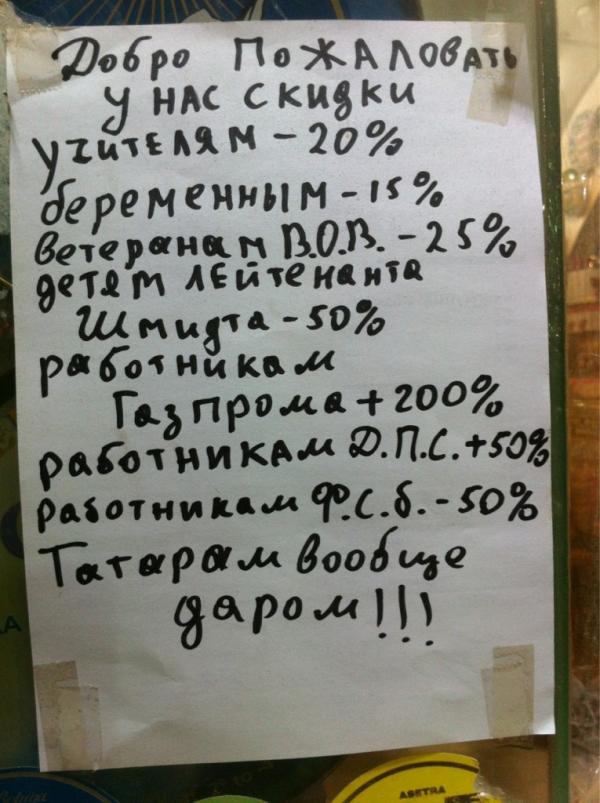 Добро ПоЖАЛовать
у НАС скидки
учителям - 20%
беременным - 15%
ветеранам В.О.В. - 25%
детям лейтенанта
Шмидта - 50%
работникам
Газпрома + 200%
работникам Д.П.С. + 50%
работникам Ф.С.б. - 50%
Татарам вообще
даром!!!
ASETRA